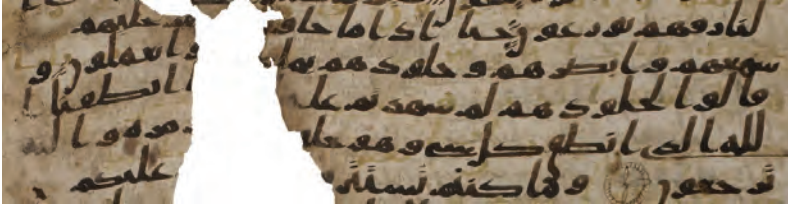 لنار فهم يوزعون حتا اذا ما جاو عليهم
سمعهم وابصرهم وجلودهم بما يعملون و
قالوا لجلودهم لم شهدتم عليـ ا انطقنا ا
لله الذي انطق كل شي وهو خلـ مره وا ليه
ترجعون وما كنتم تستتر عليكم